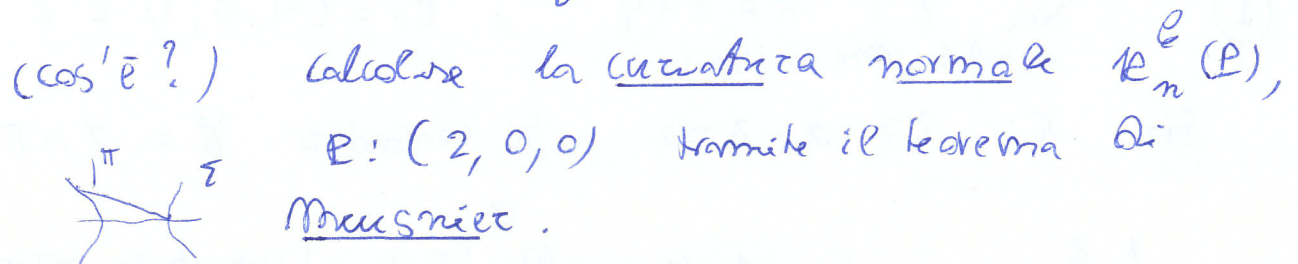 (cos'è?) calcolare la curvatura normale k_n^e (P),
π Σ P: (2, 0, 0) tramite il teorema di
Meusnier.